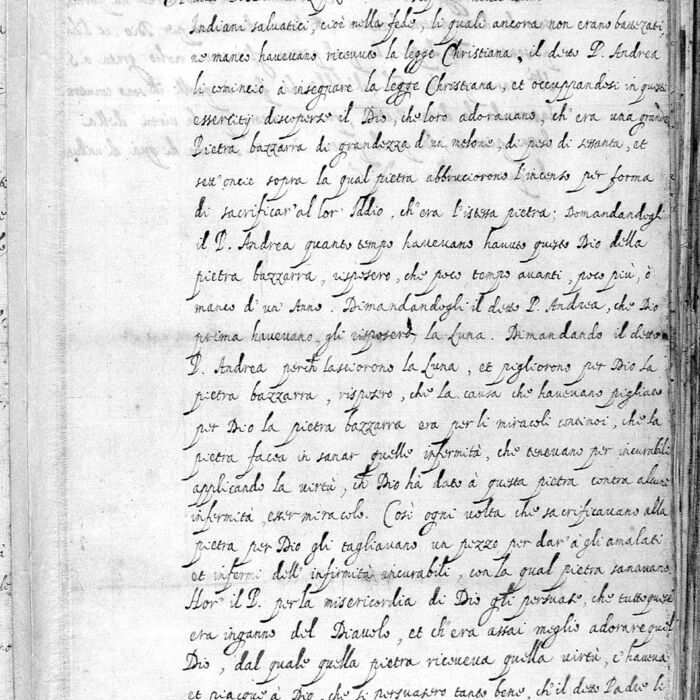 Indiani salvatici, cioè nella fede, li quali ancora non erano battezati,
ne manco havevano ricevuto la legge Christiana, il detto P. Andrea
li cominciò à insegnare la legge Christiana, et occuppandosi in questi
essercitij discoperse il Dio, che loro adoravano, ch'era una grande
Pietra bazzarra di grandezza d'un melone, di peso di settanta, et
sett'oncie sopra la qual pietra abbruciorono l'incenso per forma
di sacrificar' al lor Iddio, ch'era l'istessa pietra; Domandandogli
il P. Andrea quanto tempo havevano havuto questo Dio della
pietra bazzarra, risposero, che poco tempo avanti, poco più, ò
manco d'un Anno. Dimandandogli il detto P. Andrea, che Dio
prima havevano, gli risposero la Luna. Dimandando il detto
P. Andrea perch lasciorono la Luna, et pigliorono per Dio la
pietra bazzarra, risposero, che la causa che havevano pigliato
per Dio la pietra bazzarra era per li miracoli continoi, che la
pietra facea in sanar quelle infermità, che tenevano per incurabili
applicando la virtù, ch Dio hà dato à questa pietra contra alcune
infermità, esser miracolo. Così ogni volta che sacrificavano alla
pietra per Dio gli tagliavano un pezzo per dar' à gli amalati
et infermi dell' infirmità incurabili, con la qual pietra sanavano
Hor' il P. per la misericordia di Dio gli persuase, che tutto questo
era inganno del Diavolo, et ch'era assai meglio adorare quel
Dio, dal quale quella pietra riceveva quella virtù, c'haveva
et piacque à Dio, che li persuasero tanto bene, ch'il detto Padre li